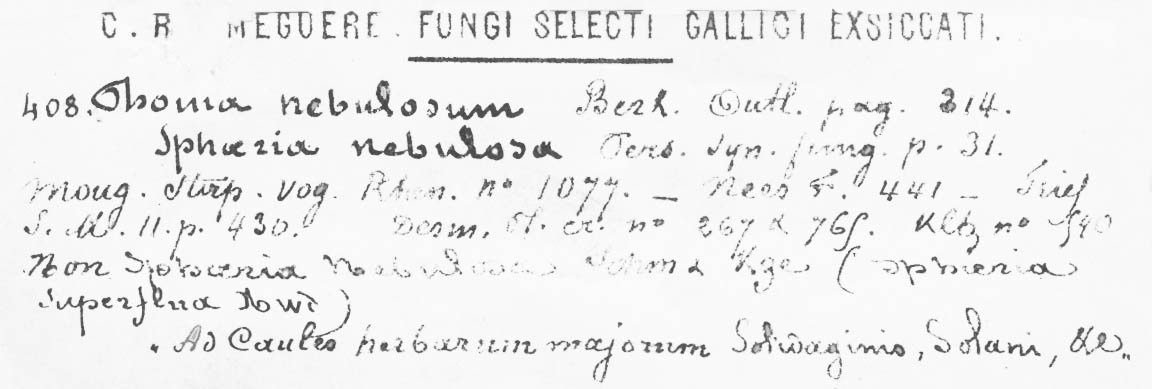 C. R. MEGUERE. FUNGI SELECTI GALLICI EXSICCATI.
408. Phoma nebulosum Berk. Outl. pag. 314.
Sphæria nebulosa Pers. Syn. fung. p. 31.
Moug. Stirp. Vog. Rhen. nº 1077. — Nees F. 441 — Fries
S. M. II. p. 430. Desm. Pl. cr. nº 267 & 765. Kltz nº 590
Non Sphæria Nebulosa Schm & Kze (Sphæria
Superflua Awd)
„ Ad Caules herbarum majorum Solidaginis, Solani, &c „